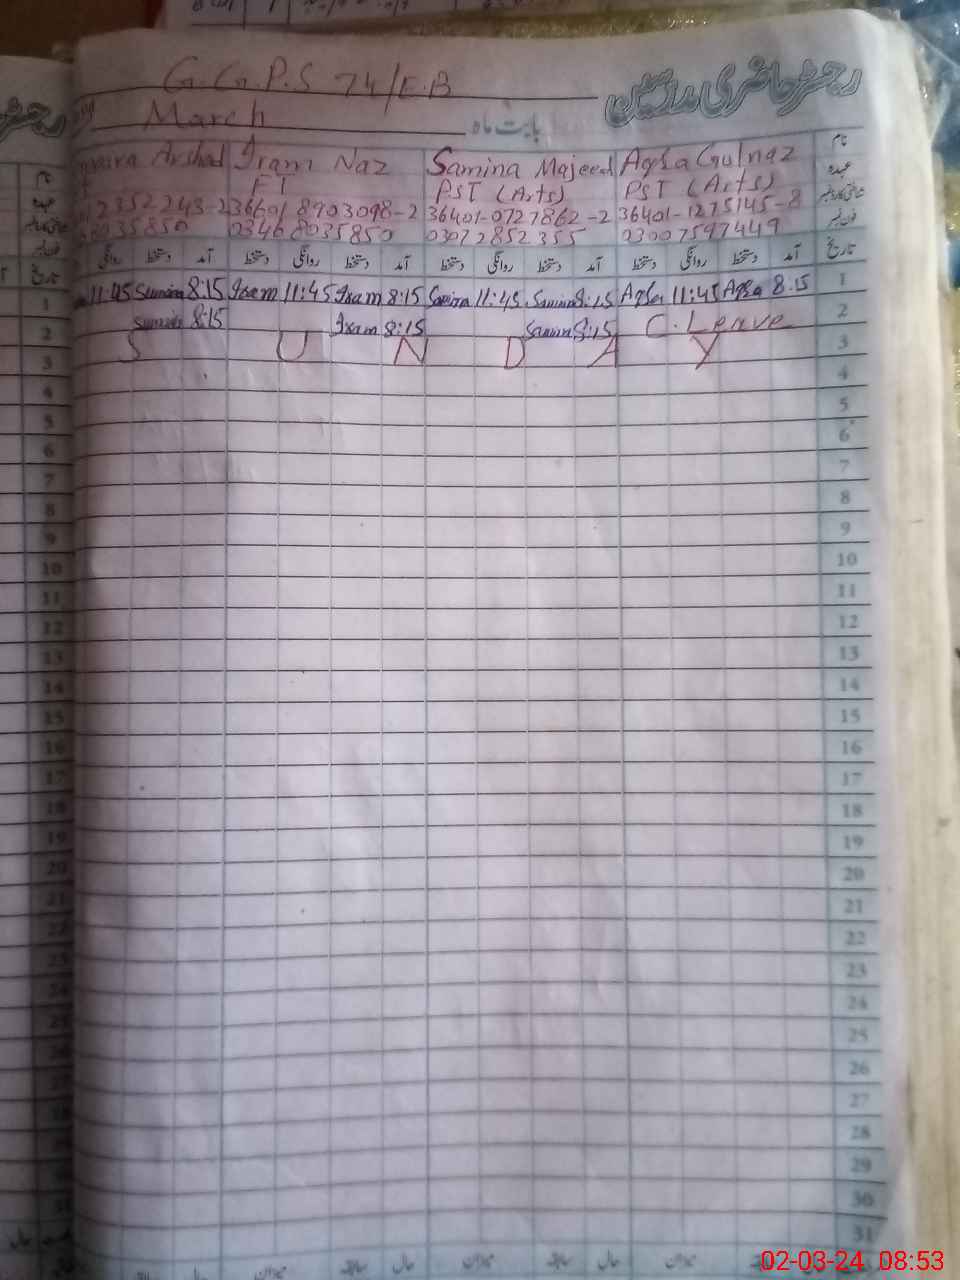 G.G.P.S 74/E.B
رجسٹر حاضری مدرسین
March
بابت ماہ
Arshad Iram Naz Samina Majeed Aqsa Gulnaz نام
PST (Arts) PST (Arts) عہدہ
36401-0727862-2 36401-1275145-8
8035850 03468035850 03072852355 03007597449 فون نمبر
روانگی دستخط آمد دستخط روانگی دستخط آمد دستخط روانگی دستخط آمد دستخط روانگی دستخط آمد تاریخ
11:45 Sumaira 8:15 Iram 11:45 Iram 8:15 Samina 11:45 Samina 8:15 Aqsa 11:45 Aqsa 8:15 1
8:15 Iram 8:15 Samina 8:15 C. Leave 2
S U N D A Y 3
4
5
6
7
8
9
10
11
12
13
14
15
16
17
18
19
20
21
22
23
24
25
26
27
28
29
30
31
میزان حال سابقہ میزان حال سابقہ
02-03-24 08:53